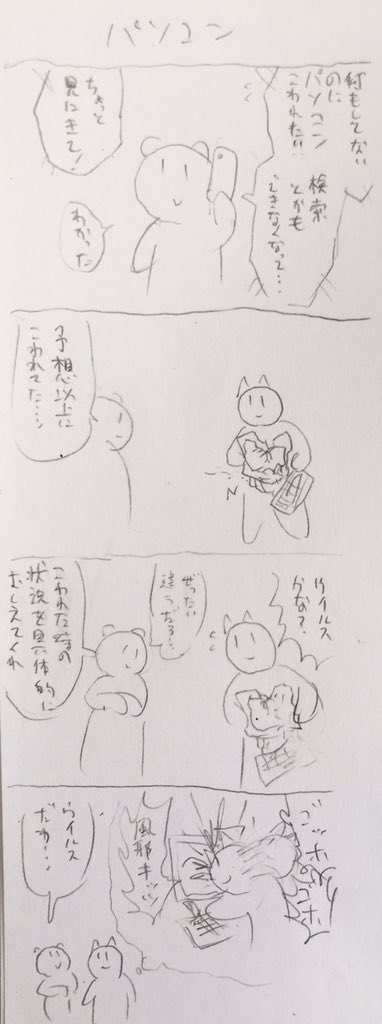 パソコン
何もしてない
のに
パソコン
こわれた!!
検索
とかも
できなくなって…
ちょっと
見にきて!
わかった
予想以上に
こわれてた…
ウイルス
かな?
ぜったい
違うだろ…
こわれた時の
状況を具体的に
おしえてくれ
風邪キック
ウイルス
だわ…